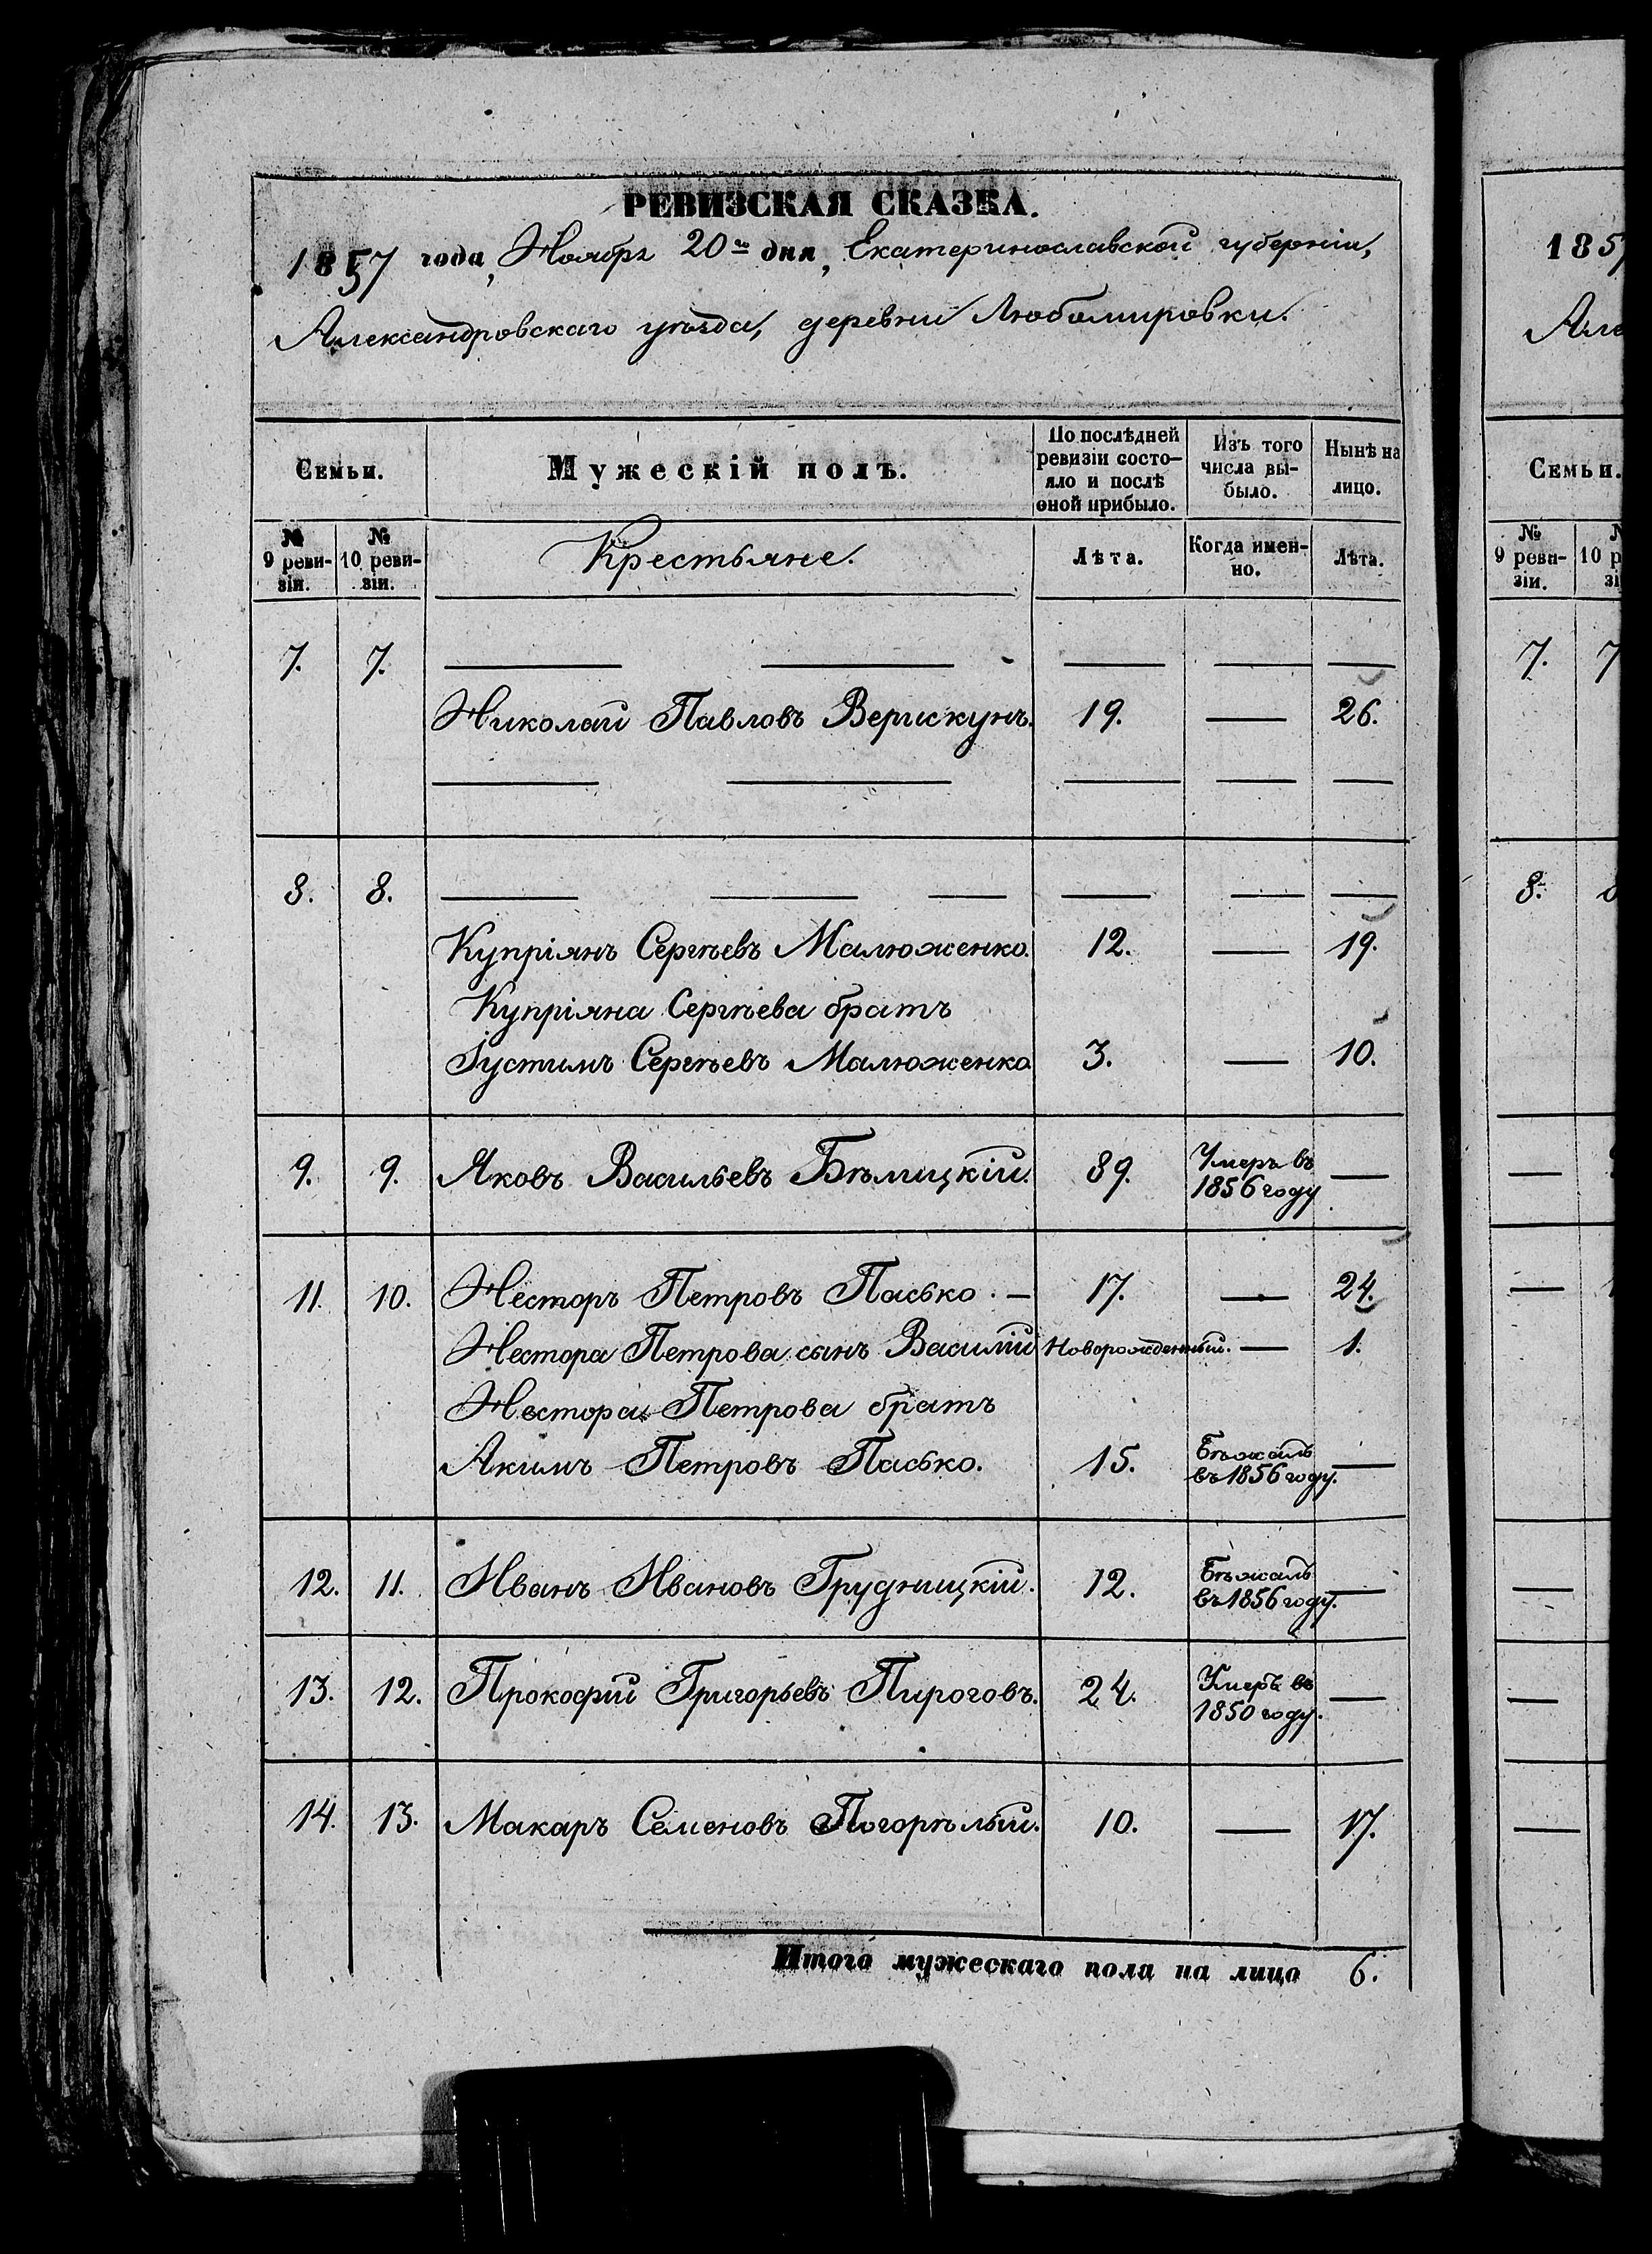 РЕВИЗСКАЯ СКАЗКА.
1857 года, Ноября 20го дня, Екатеринославской губерніи,
Александровскаго уѣзда, деревни Любомировки.
Семьи.
Мужескій полъ.
По послѣдней ревизіи состо-
яло и послѣ оной прибыло.
Изъ того числа вы-
было.
Нынѣ на лицо.
№ 9 реви-
зіи.
№ 10 реви-
зіи.
Крестьяне.
Лѣта.
Когда имен-
но.
Лѣта.
7. 7. — — — — —
Николай Павловъ Верискунъ. 19. — 26.
— — — — —
8. 8. — — — — — —
Купріянъ Сергѣевъ Малюженко. 12. — 19.
Купріяна Сергѣева братъ
Іустимъ Сергѣевъ Малюженко 3. — 10.
9. 9. Яковъ Васильевъ Бѣлицкій. 89. Умеръ въ 1856 году —
11. 10. Несторъ Петровъ Пасько. — 17. — 24.
Нестора Петрова сынъ Василій Новорожденный. — 1.
Нестора Петрова братъ
Акимъ Петровъ Пасько. 15. Бѣжалъ въ 1856 году. —
12. 11. Иванъ Ивановъ Грудницкій. 12. Бѣжалъ въ 1856 году. —
13. 12. Прокофій Григорьевъ Пироговъ. 24. Умеръ въ 1850 году. —
14. 13. Макаръ Семеновъ Погорѣлый. 10. — 17.
Итого мужескаго пола на лицо 6.
185
Але
Семьи.
№ 9 реви-
зіи.
7. 7
8.